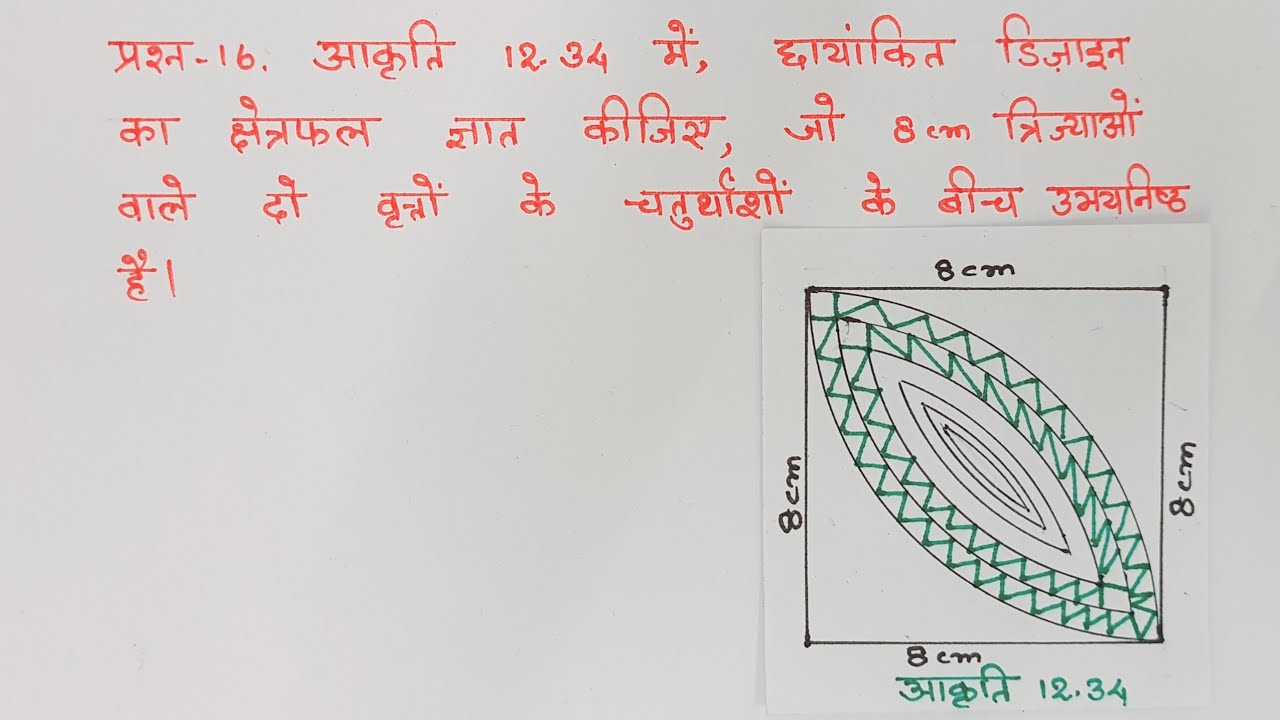 प्रश्न-16. आकृति 12.34 में, छायांकित डिज़ाइन
का क्षेत्रफल ज्ञात कीजिए, जो 8 cm त्रिज्याओं
वाले दो वृत्तों के चतुर्थांशों के बीच उभयनिष्ठ
है।
8 cm
8 cm
8 cm
8 cm
आकृति 12.34